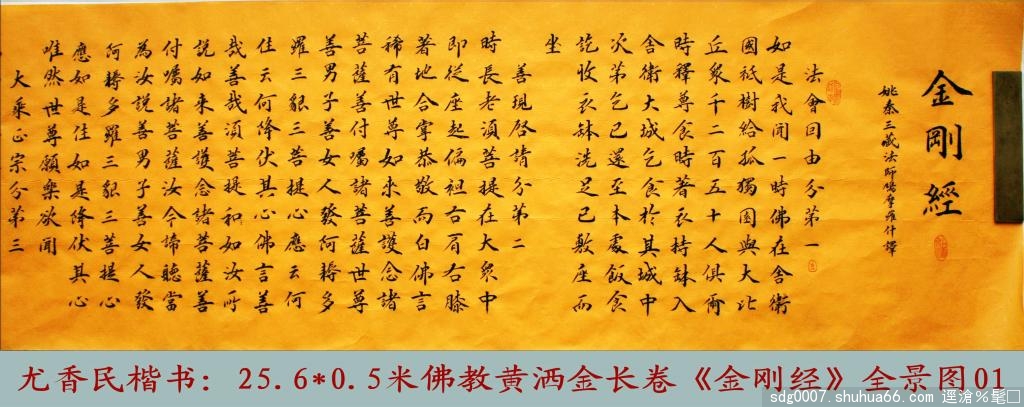 金剛經
姚秦三藏法師鳩摩羅什譯
法會因由分第一
如是我聞一時佛在舍衛
國祇樹給孤獨園與大比
丘眾千二百五十人俱爾
時釋尊食時著衣持缽入
舍衛大城乞食於其城中
次第乞已還至本處飯食
訖收衣缽洗足已敷座而
坐
善現啟請分第二
時長老須菩提在大眾中
即從座起偏袒右肩右膝
著地合掌恭敬而白佛言
稀有世尊如來善護念諸
菩薩善付囑諸菩薩世尊
善男子善女人發阿耨多
羅三藐三菩提心應云何
住云何降伏其心佛言善
哉善哉須菩提和如汝所
說如來善護念諸菩薩善
付囑諸菩薩汝今諦聽當
為汝說善男子善女人發
阿耨多羅三藐三菩提心
應如是住如是降伏其心
唯然世尊願樂欲聞
大乘正宗分第三
尤香民楷书：25.6*0.5米佛教黄洒金长卷《金刚经》全景图01
sdg0007.shuhua66.com